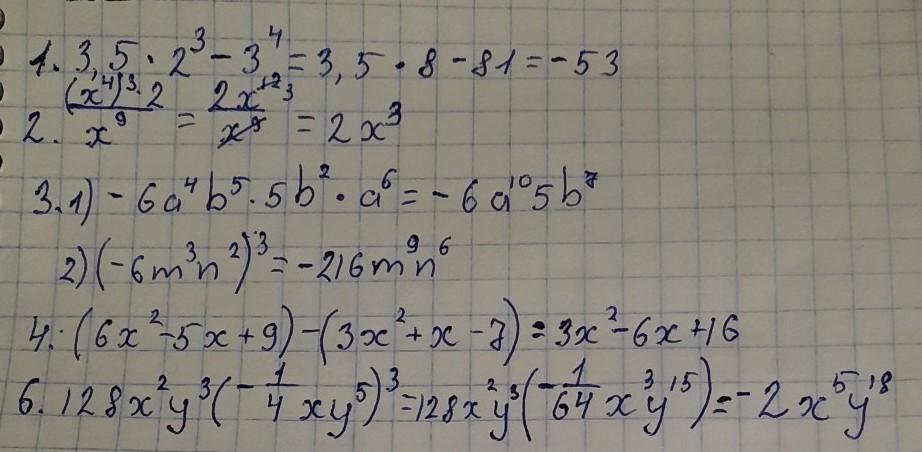 1. 3,5 · 2³ - 3⁴ = 3,5 · 8 - 81 = -53
2. (x⁴)³·2/x⁹ = 2x¹²³/x⁹ = 2x³
3. 1) -6a⁴b⁵·5b²·a⁶ = -6a¹⁰5b⁷
2) (-6m³n²)³ = -216m⁹n⁶
4. (6x²-5x+9)-(3x²+x-7) = 3x²-6x+16
6. 128x²y³(-1/4xy⁵)³ = 128x²y³(-1/64x³y¹⁵) = -2x⁵y¹⁸